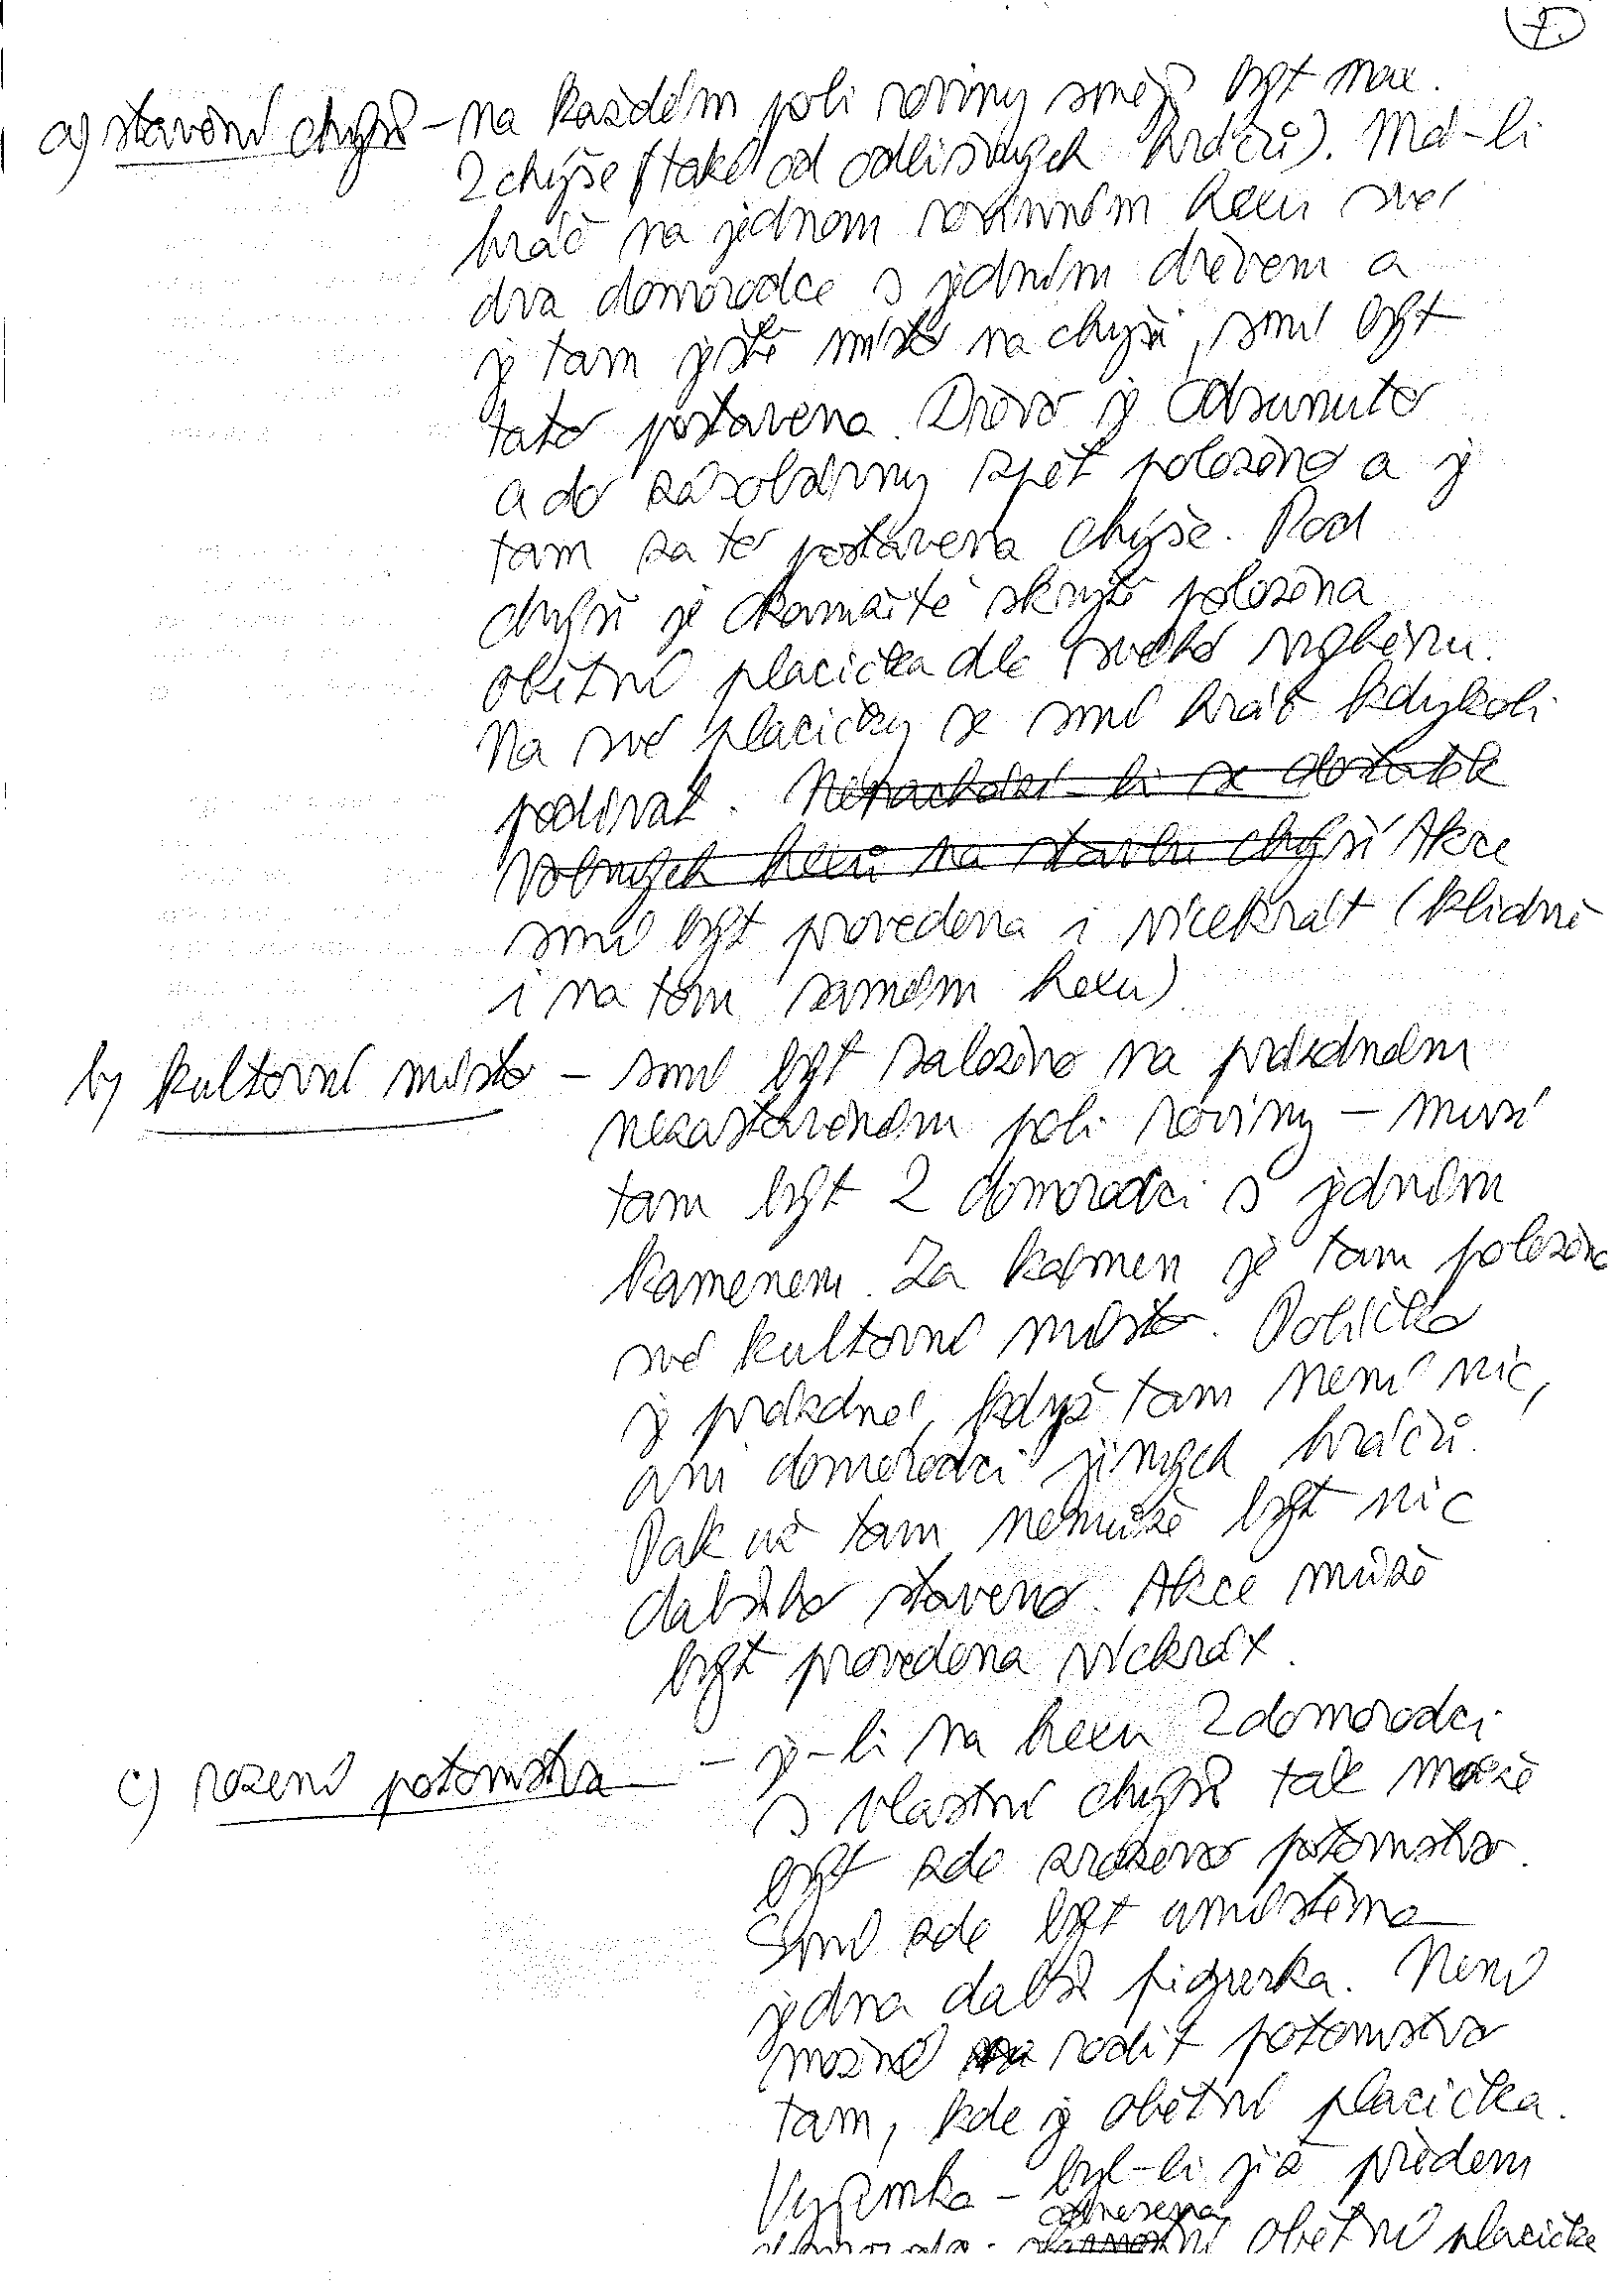 7.
a) stavění chýší – na každém poli roviny smějí být max.
2 chýše (také od odlišných hráčů). Má-li
hráč na jednom rovinném hexu své
dva domorodce s jedním dřevem a
je tam ještě místo na chýši, smí být
tato postavena. Dřevo je odsunuto
a do zásobárny zpět položeno a je
tam za to postavena chýše. Pod
chýši je okamžitě skrytě položena
obětní placička dle svého výběru.
Na své placičky se smí hráč kdykoli
podívat. Nenachází-li se dostatek
volných hexů na stavbu chýší Akce
smí být provedena i vícekrát (klidně
i na tom samém hexu)
b) kultovní místo – smí být založeno na prázdném
nezastavěném poli roviny – musí
tam být 2 domorodci s jedním
kamenem. Za kámen je tam položeno
své kultovní místo. Políčko
je prázdné, když tam není nic,
ani domorodci jiných hráčů.
Pak už tam nemůže být nic
dalšího staveno. Akce může
být provedena víckrát.
c) rození potomstva – je-li na hexu 2 domorodci
s vlastní chýší tak může
být zde zrozeno potomstvo.
Smí zde být umístěna
jedna další figurka. Není
možné rodit potomstvo
tam, kde je obětní placička.
Vyjímka – byl-li již předem
odnesena
obětní placička